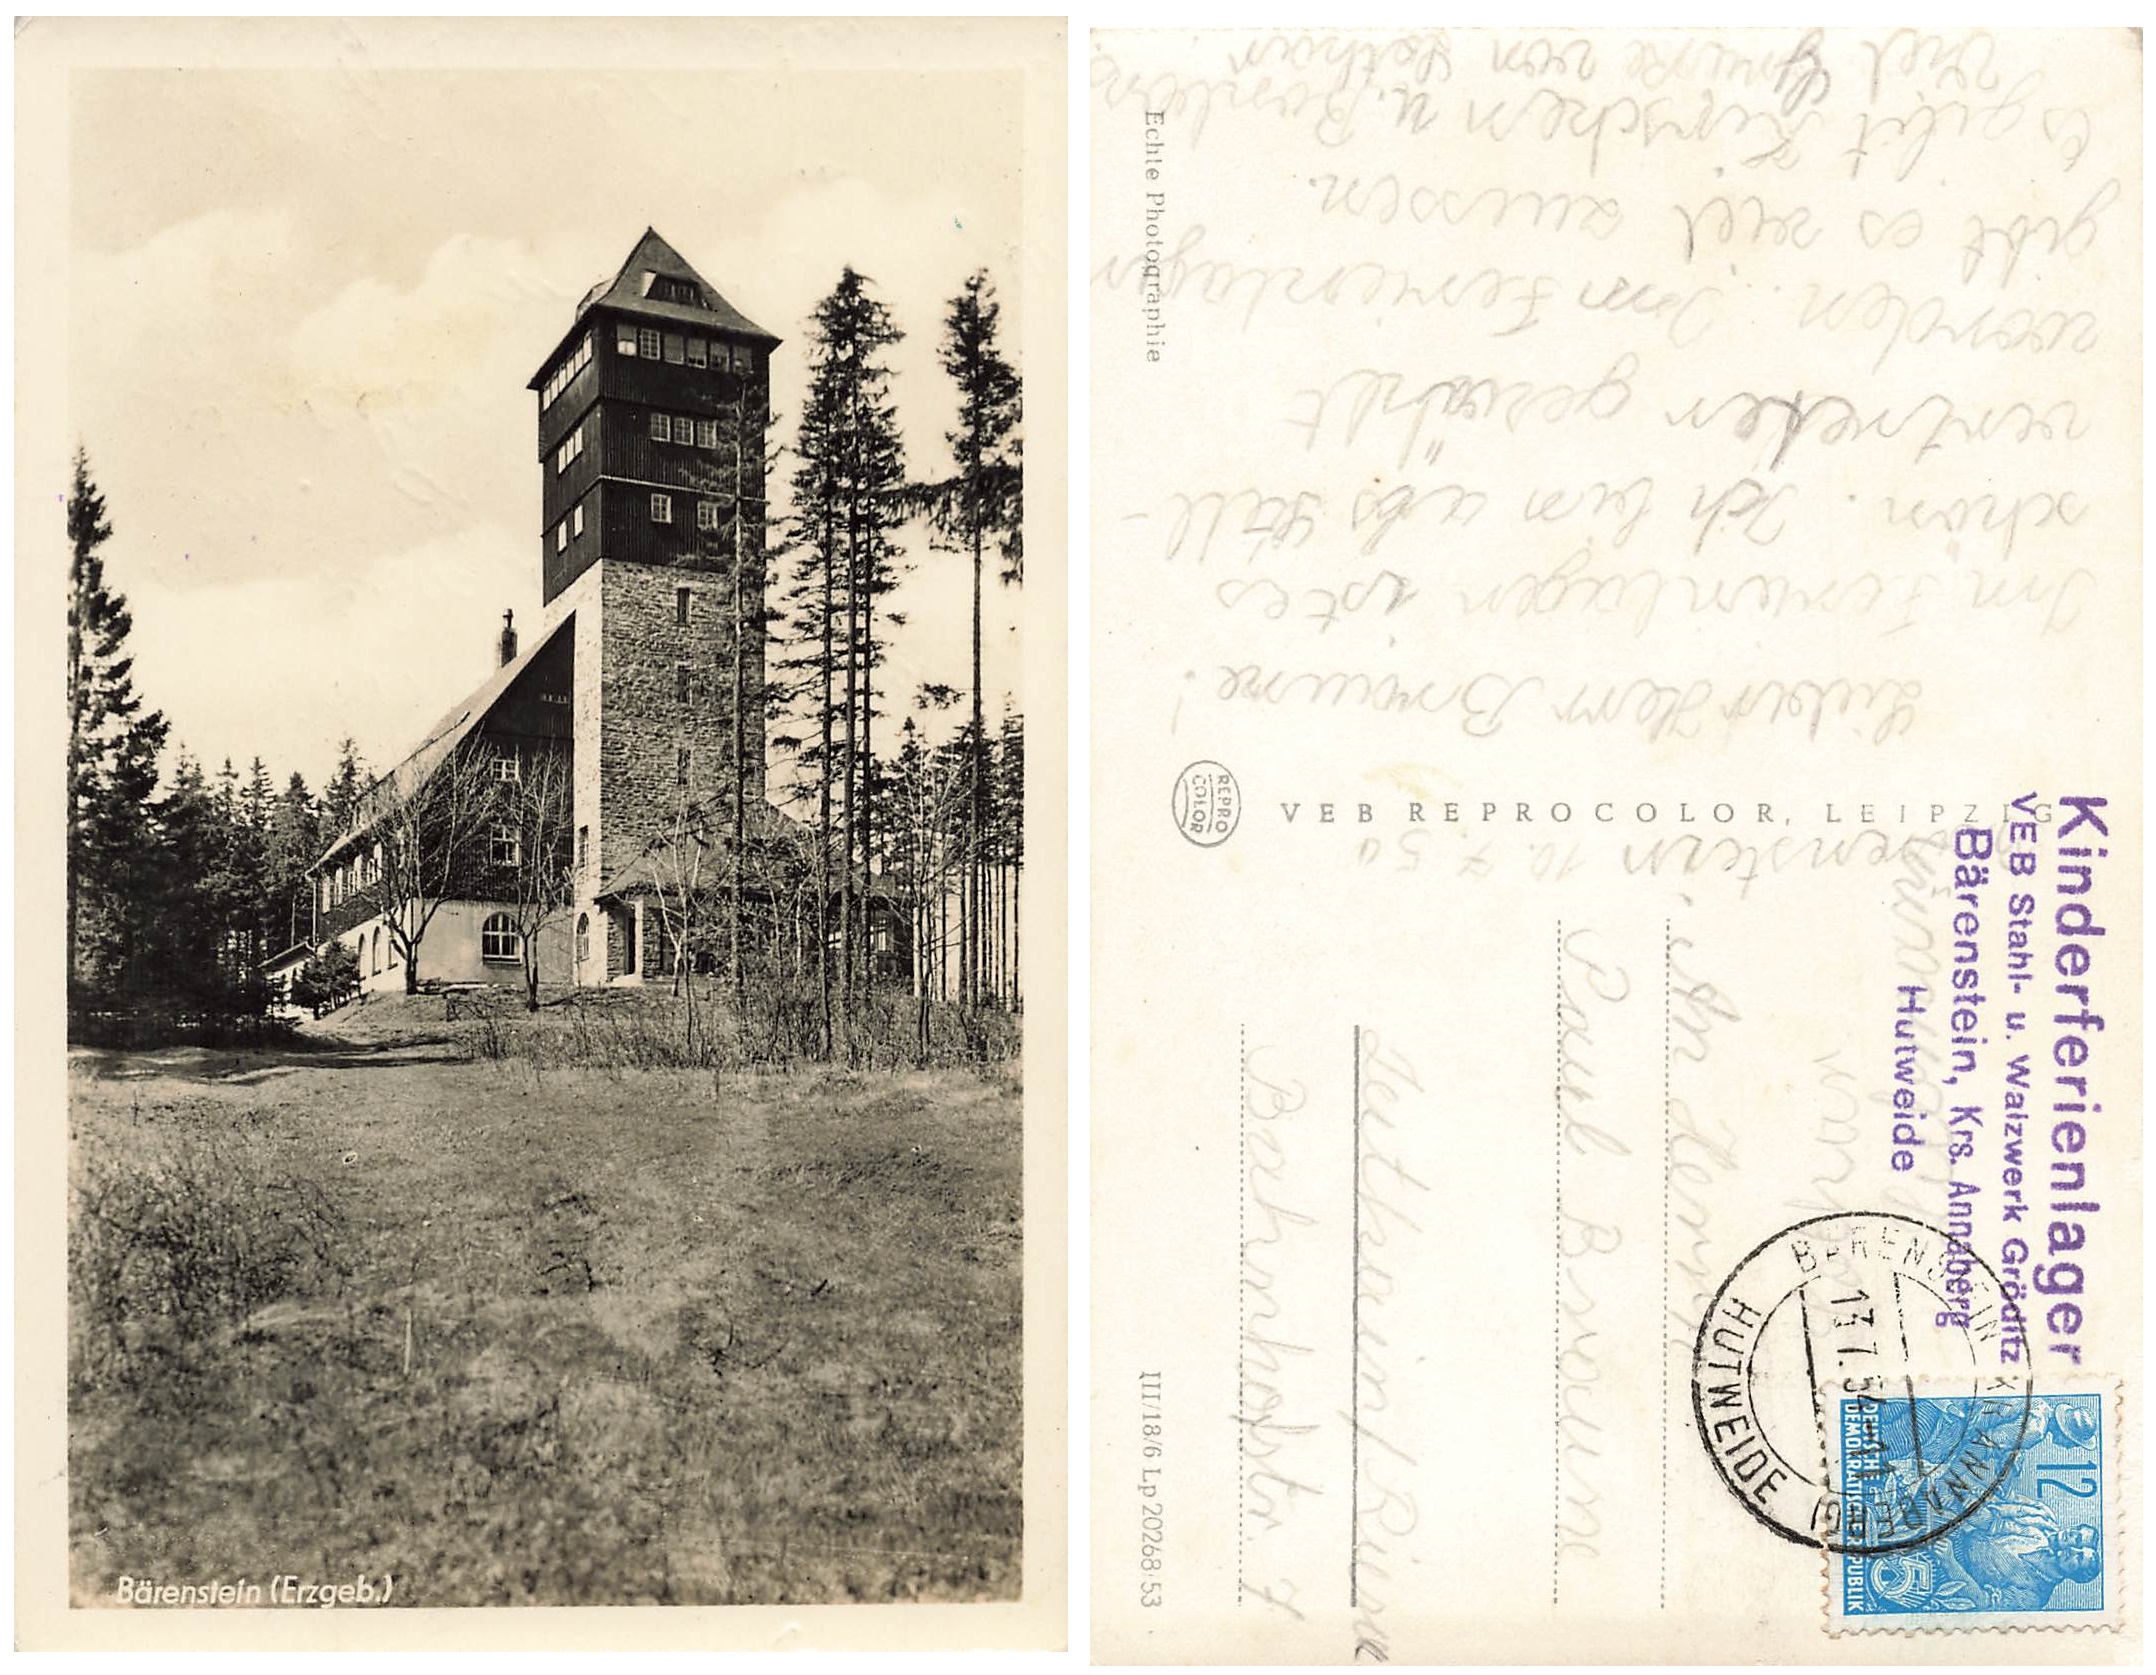 Bärenstein (Erzgeb.)
Lieber Herr Braune!
Im Ferienlager ist es
schön. Ich bin als Stell-
vertreter gewählt
worden. Im Ferienlager
gibt es viel zuessen.
Es gibt Kirschen u. Bonbons
Viel Grüsse von Lothar
Echte Photographie
VEB REPROCOLOR, LEIPZIG
REPRO
COLOR
III/18/6 Lp 20268/53
Kinderferienlager
VEB Stahl- u. Walzwerk Gröditz
Bärenstein, Krs. Annaberg
Hutweide
BÄRENSTEIN (KR ANNABERG)
13.7.54
HUTWEIDE
12
DEUTSCHE
DEMOKRATISCHE REPUBLIK
5
enstein 10.7.54
An Herrn
Paul Braune
Bahnhofstr. 7